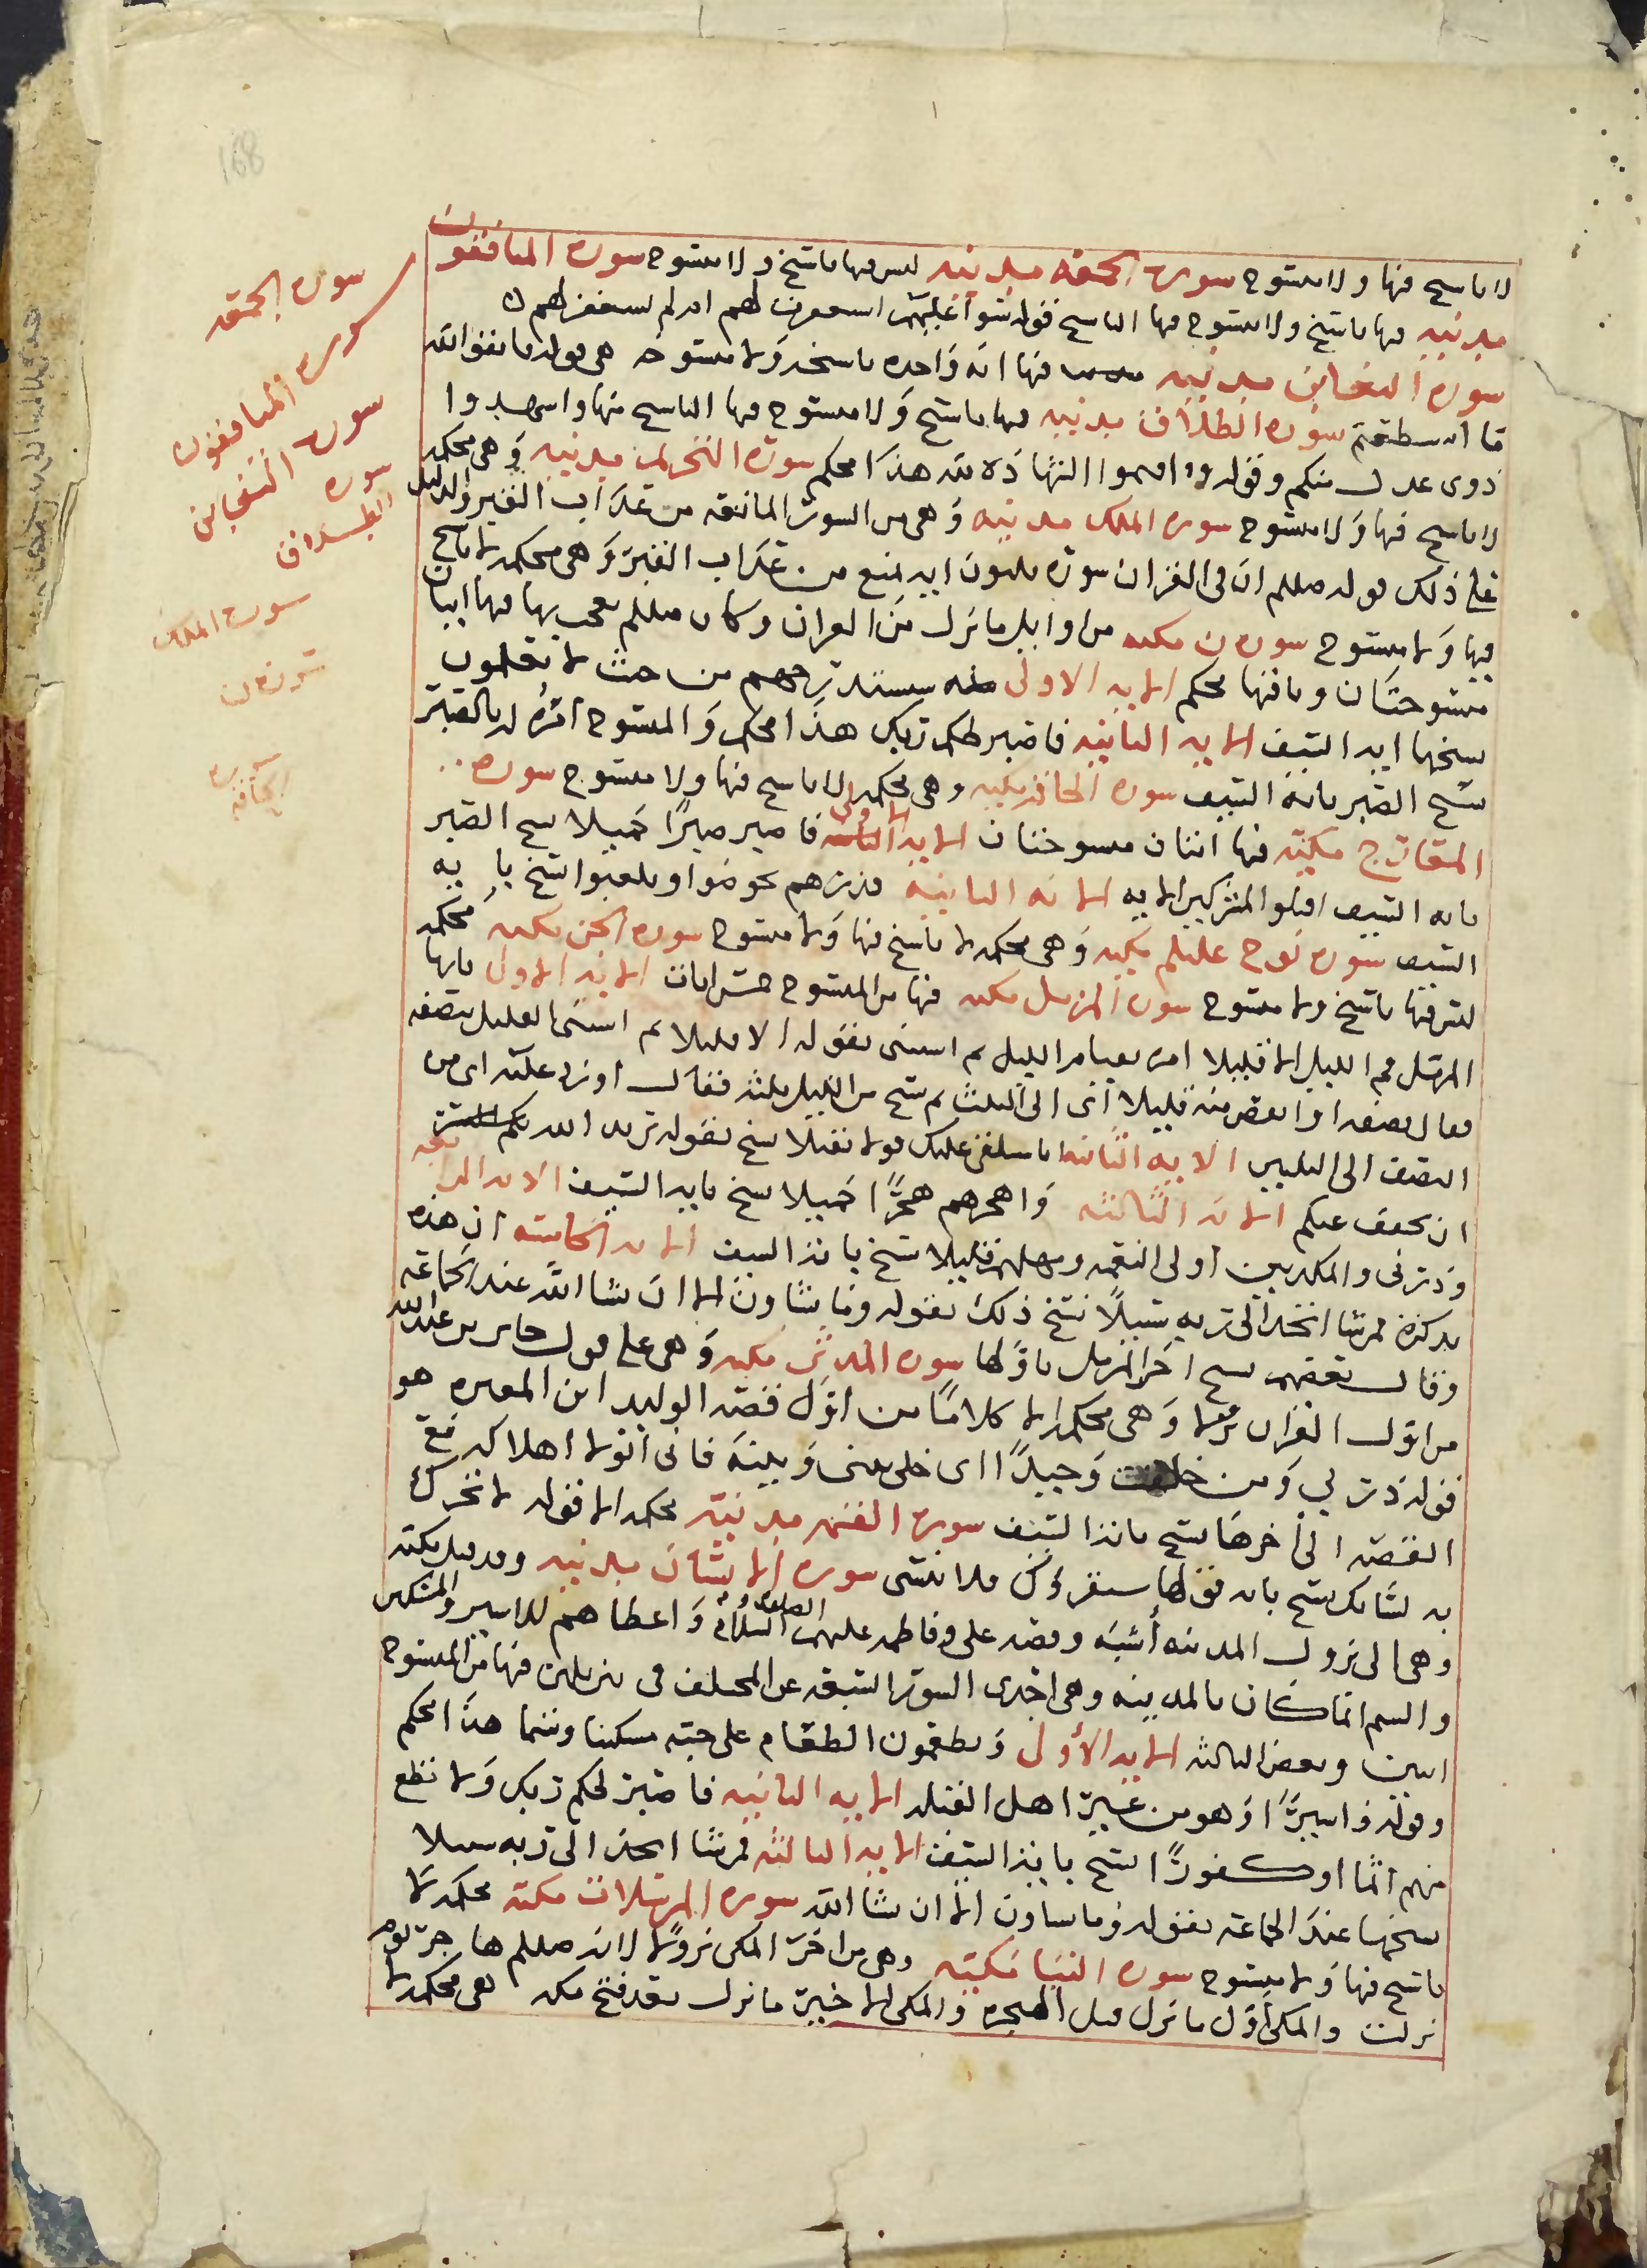 168
لا ناسخ فيها ولا منسوخ سورة الجمعة مدنية ليس فيها ناسخ ولا منسوخ سورة المنافقون
مدنية فيها ناسخ ولا منسوخ فيها الناسخ قوله سوآ عليهم استغفرت لهم ام لم تستغفر لهم
سورة التغابن مدنية فيها آية واحدة ناسخة ولا منسوخة هي قوله فاتقوا الله
ما استطعتم سورة الطلاق مدنية فيها ناسخ ولا منسوخ فيها الناسخ منها واشهدوا
ذوى عدل منكم وقوله واقيموا الشهادة لله هذا محكم سورة التحريم مدنية وهي محكمة
لا ناسخ فيها ولا منسوخ سورة الملك مدنية وهي من السور المانعة من عذاب القبر والدليل
على ذلك قوله صللم ان في القران سورة ثلثون اية تمنع من عذاب القبر وهي محكمة لا ناسخ
فيها ولا منسوخ سورة ن مكية من اوايل ما نزل من القران وكان صللم معجب بها فيها ايتان
منسوختان وباقيها محكم الاية الاولى قوله سنستدرجهم من حيث لا يعلمون
نسخها اية السيف الاية الثانية فاصبر لحكم ربك هذا محكم والمنسوخ امره له بالصبر
نسخ الصبر باية السيف سورة الحاقة مكية وهي محكمة لا ناسخ فيها ولا منسوخ سورة
المعارج مكية فيها اثنان منسوختان الاية الاولى فاصبر صبرًا جميلا نسخ الصبر
باية السيف اقتلوا المشركين الاية الاية الثانية فذرهم يخوضوا ويلعبوا نسخ باية
السيف سورة نوح عليلم مكية وهي محكمة لا ناسخ فيها ولا منسوخ سورة الجن مكية محكمة
ليس فيها ناسخ ولا منسوخ سورة المزمل مكية فيها من المنسوخ خمس ايات الاية الاولى يايها
المزمل قم الليل الا قليلا امره بقيام الليل ثم استثنى بقوله الا قليلا ثم استثنى القليل بنصفه
فقال نصفه او انقص منه قليلا اى الى الثلث ثم نسخ من الليل ثلثه فقال او زد عليه اى من
النصف الى الثلثين الاية الثانية انا سنلقي عليك قولا ثقيلا نسخ بقوله يريد الله
ان يخفف عنكم الاية الثالثة واهجرهم هجرًا جميلا نسخ باية السيف الاية الرابعة
وذرني والمكذبين اولى النعمة ومهلهم قليلا نسخ باية السيف الاية الخامسة ان هذه
تذكرة فمن شا اتخذ الى ربه سبيلًا نسخ ذلك بقوله وما تشاون الا ان يشا الله عند الجماعة
وقال بعضهم نسخ اخر المزمل باولها سورة المدثر مكية وهي على قول جابر بن عبدالله
من اول القران نزولا وهي محكمة الا كلامًا من اول قصة الوليد ابن المغيرة هو
قوله ذرني ومن خلقت وحيدًا اى خلي بيني وبينه فاني اتولا اهلاكه مع
القصة الى اخرها نسخ باية السيف سورة القيمه مدنية محكمة الا قوله لا تحرك
به لسانك نسخ باية قولها سنقرؤك فلا تنسى سورة الانسان مدنية وقد قيل مكية
وهي الى نزول المدينه أشبه وقصة علي وفاطمه عليهم الصلاة السلام واعطاهم للاسير والمسكين
واليتيم انما كان بالمدينه وهي احدى السور السبعة عن المختلف في تنزيلهن فيها من المنسوخ
ايتين وبعض الثالثه الاية الأولى ويطعمون الطعام على حبه مسكينا ويتيما هذا محكم
وقوله واسيرًا وهو من غير اهل القبله الاية الثانية فاصبر لحكم ربك ولا تطع
منهم اثما او كفورًا نسخ باية السيف الاية الثالثة فمن شا اتخذ الى ربه سبيلا
نسخها عند الجماعة بقوله وما تشاون الا ان يشا الله سورة المرسلات مكية محكمة لا
ناسخ فيها ولا منسوخ سورة النبا مكية وهي من اخر المكي نزولًا لانه صللم هاجر يوم
نزلت والمكي اول ما نزل قبل الهجرة والمكي الاخير ما نزل بعد فتح مكه فهي محكمة لا
سورة الجمعة
سورة المنافقون
سورة التغابن
سورة الطلاق
سورة الملك
سورة ن
سورة الحاقة